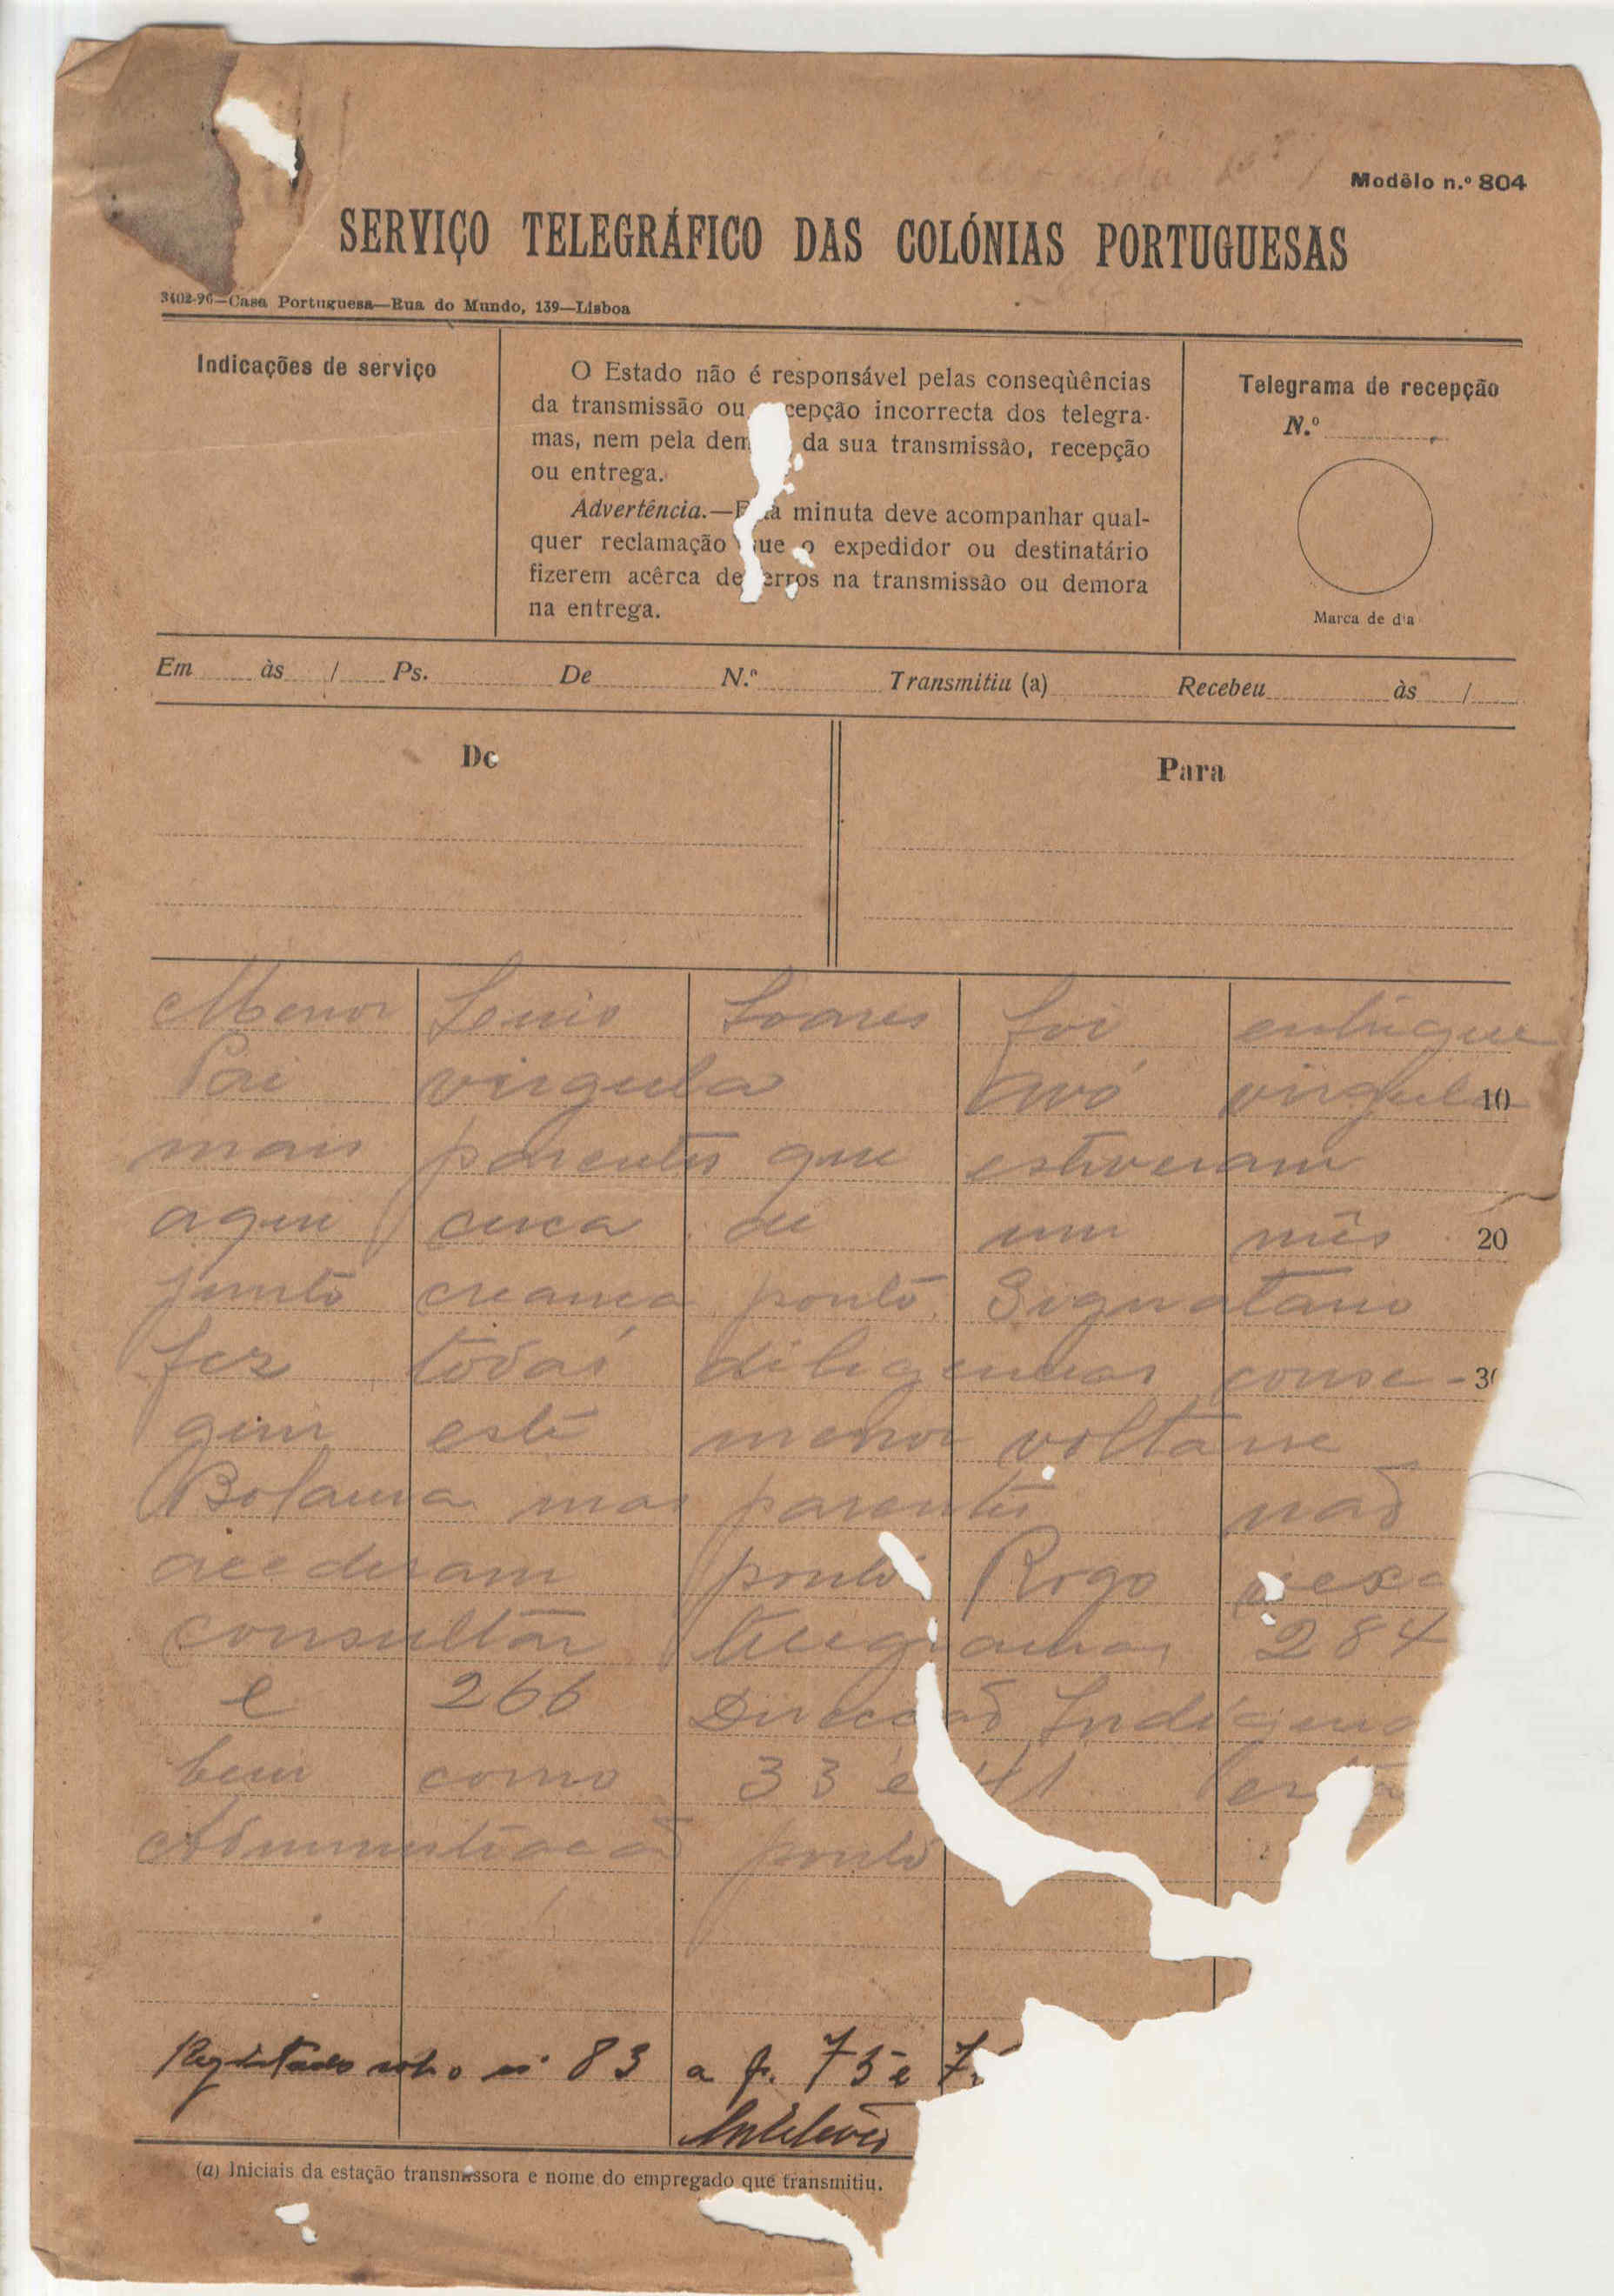 Modêlo n.º 804
SERVIÇO TELEGRÁFICO DAS COLÓNIAS PORTUGUESAS
3402-96—Casa Portuguesa—Rua do Mundo, 139—Lisboa
Indicações de serviço
O Estado não é responsável pelas conseqùências
da transmissão ou cepção incorrecta dos telegra-
mas, nem pela dem da sua transmissão, recepção
ou entrega.
Advertência.—E a minuta deve acompanhar qual-
quer reclamação que o expedidor ou destinatário
fizerem acêrca de erros na transmissão ou demora
na entrega.
Telegrama de recepção
N.º
Marca de dia
Em às / Ps. De N.º Transmitiu (a) Recebeu às /
De
Para
Menor Luis Soares foi entregue
Pai virgula avó virgula 10
mais parentes que estiveram
aqui cerca de um mês 20
junto creança ponto Signatario
fez todas diligencias conse- 30
guir este menor voltasse
Bolama mas parentes não
acederam ponto Rogo vexa
consultar telegramas 284
e 266 Direcção Indigena
bem como 33 e 41
Administração ponto
Registado sob o nº 83 a f. 75 e 7
(a) Iniciais da estação transmissora e nome do empregado que transmitiu.